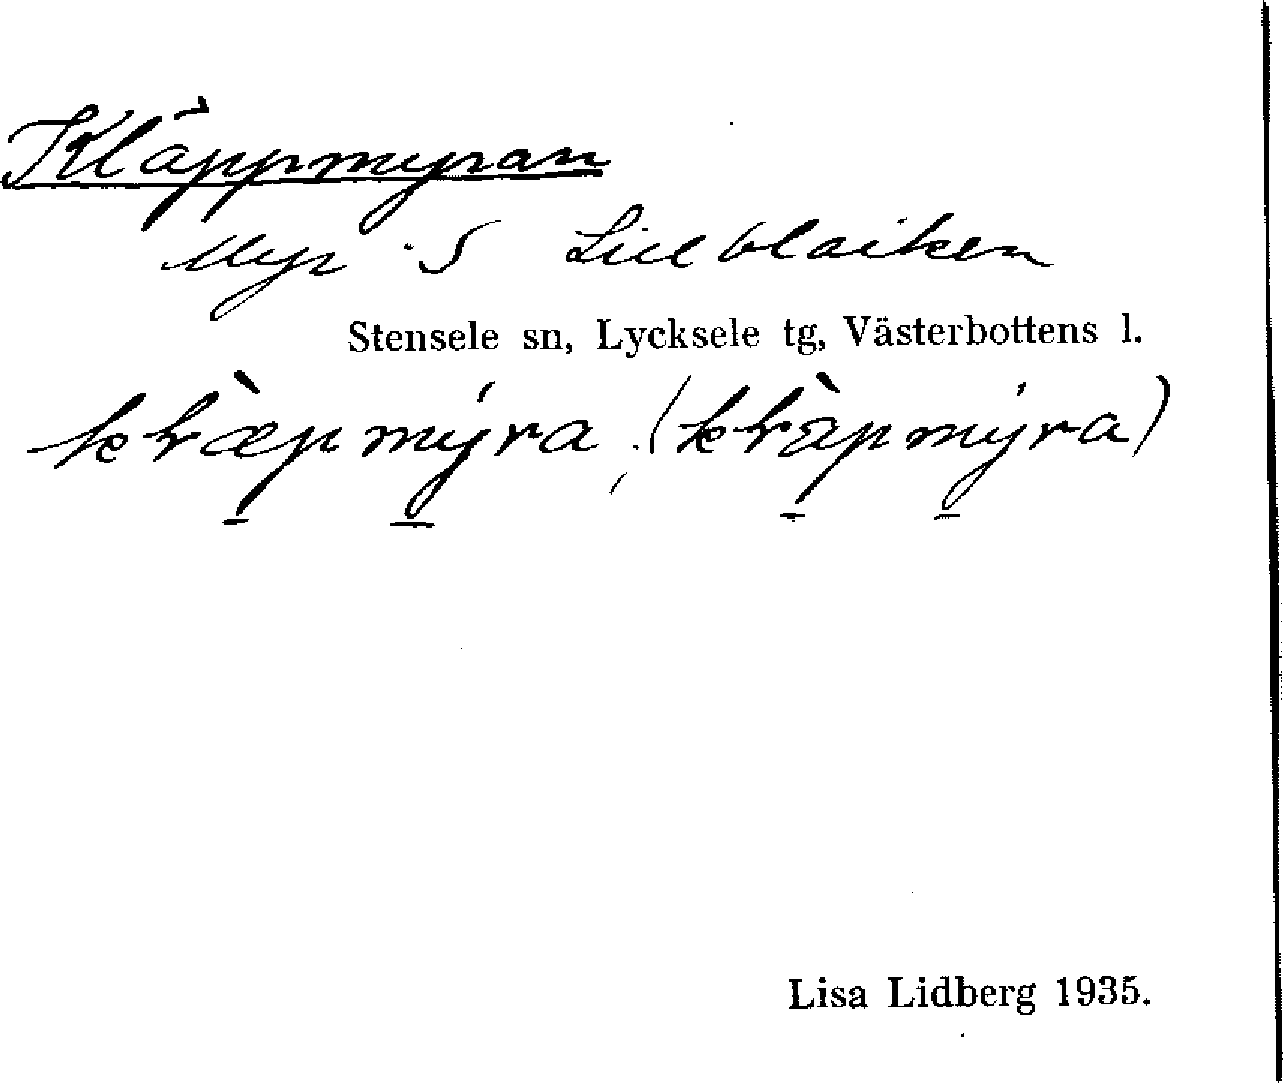 Kläppmyran
Myr S Lill blaiken
Stensele sn, Lycksele tg, Västerbottens l.
Lisa Lidberg 1935.